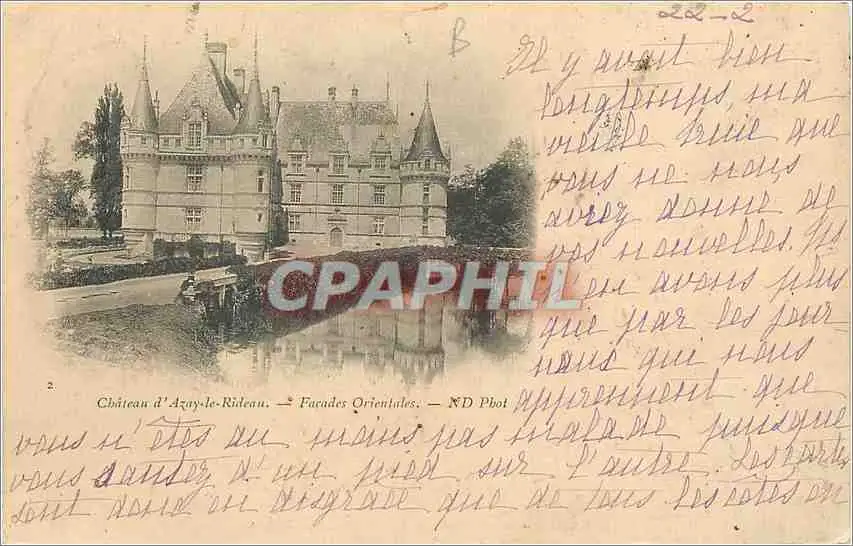 22-2
B
Il y avait bien
longtemps, ma
vieille que
vous ne nous
avez donné de
vos nouvelles. Ns
en avons plus
que par les jour
naux qui nous
apprennent que
CPAPHIL
2
Château d'Azay-le-Rideau. — Façades Orientales. — ND Phot
vous n'êtes au moins pas malade puisque
vous sautez d'un pied sur l'autre. Les cartes
sont donc en disgrâce que de tous les côtés on